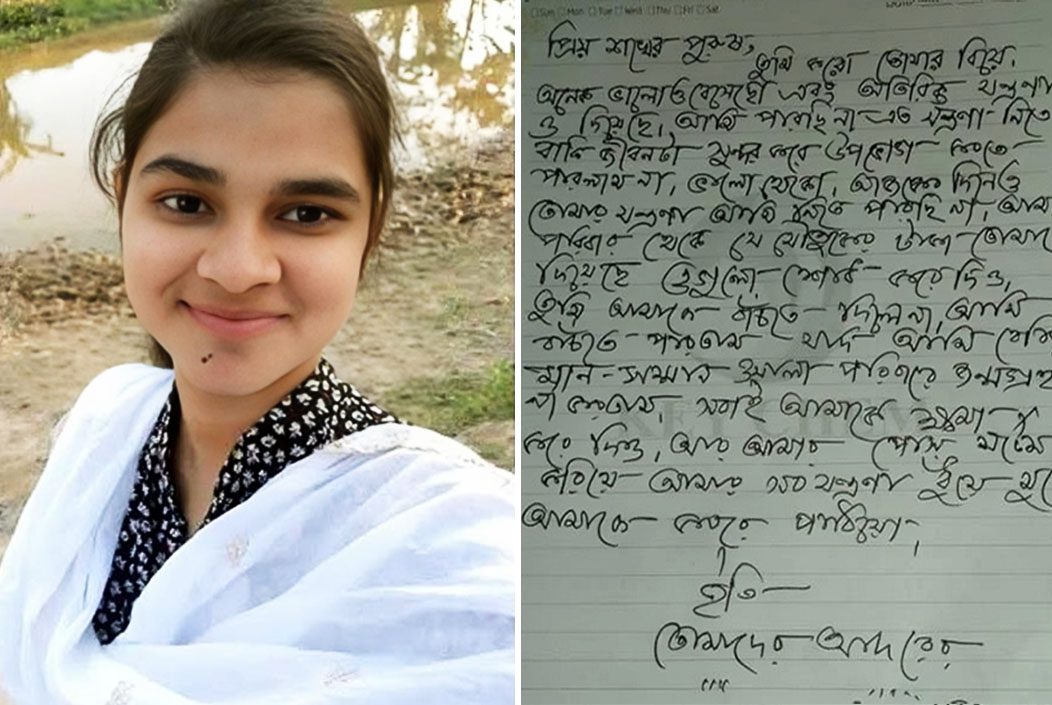 Sun Mon Tue Wed Thu Fri Sat
প্রিয় শখের পুরুষ,
তুমি করো তোমার বিয়ে,
অনেক ভালোও বেসেছো এবং অতিরিক্ত যন্ত্রণা
ও দিয়েছে, আমি পারছি না এত যন্ত্রণা নিতে
বাকি জীবনটা সুন্দর করে উপভোগ করতে
পারলাম না, ভালো থেকো, আজকের দিনেও
তোমার যন্ত্রণা আমি নিতে পারছি না, আমা
পরিবার থেকে যে যৌতুকের টাকা তোমাকে
দিয়েছে ওগুলো শোধ করে দিও,
তুমি আমাকে বাঁচতে দিলে না, আমি
বাঁচতে পারতাম যদি আমি বেশি
মান-সম্মান ওয়ালা পরিবারে জন্মগ্রহ
না করতাম, সবাই আমাকে ক্ষমা
করে দিও, আর আমার পোস্ট মর্টেম
করিয়ে আমার সব যন্ত্রণা ধুয়ে মুছে
আমাকে কবরে পাঠিয়ো,
ইতি
তোমাদের আদরের